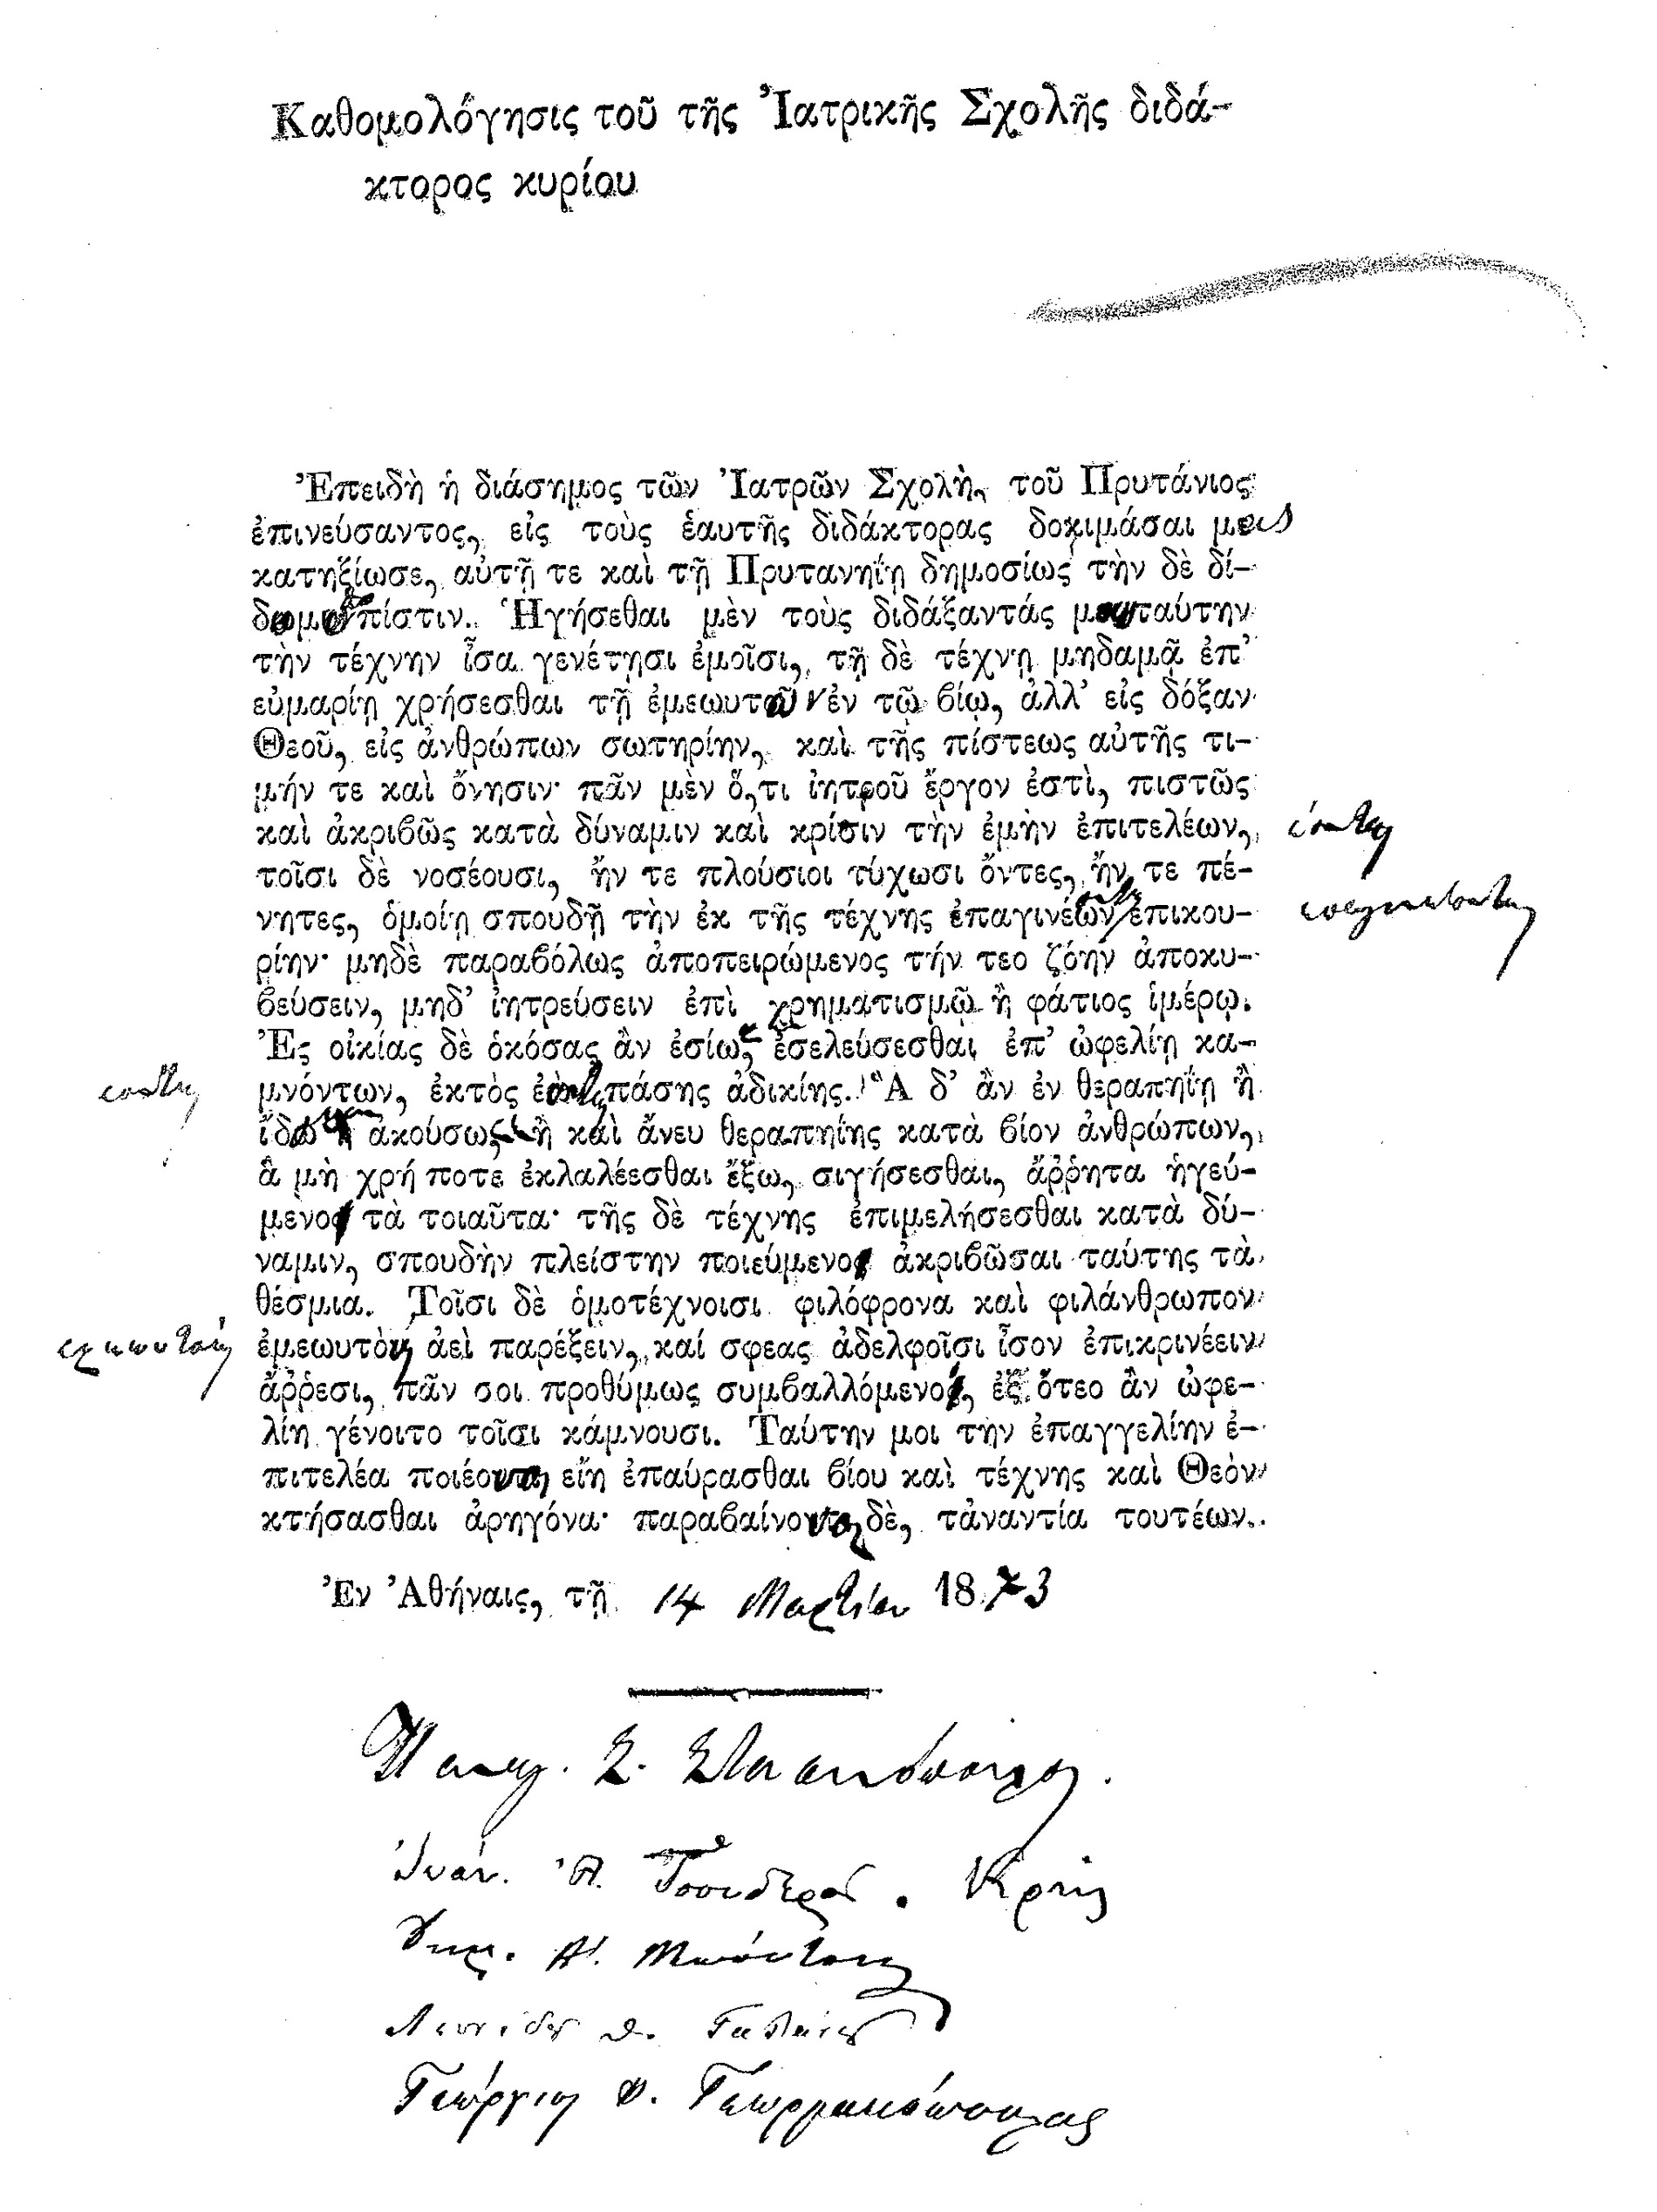 Καθομολόγησις τοῦ τῆς Ἰατρικῆς Σχολῆς διδά-
κτορος κυρίου
Ἐπειδὴ ἡ διάσημος τῶν Ἰατρῶν Σχολὴ, τοῦ Πρυτάνιος
ἐπινεύσαντος, εἰς τοὺς ἑαυτῆς διδάκτορας δοκιμάσαι
κατηξίωσε, αὐτῇ τε καὶ τῇ Πρυτανηΐῃ δημοσίως τὴν δὲ δί-
πίστιν. Ἡγήσεθαι μὲν τοὺς διδάξαντάς ταύτην
τὴν τέχνην ἶσα γενέτῃσι ἐμοῖσι, τῇ δὲ τέχνῃ μηδαμᾷ ἐπ'
εὐμαρίῃ χρήσεσθαι τῇ ἐμεωυτῶν ἐν τῷ βίῳ, ἀλλ' εἰς δόξαν
Θεοῦ, εἰς ἀνθρώπων σωτηρίην, καὶ τῆς πίστεως αὐτῆς τι-
μήν τε καὶ ὄνησιν· πᾶν μὲν ὅ,τι ἰητροῦ ἔργον ἐστὶ, πιστῶς
καὶ ἀκριβῶς κατὰ δύναμιν καὶ κρίσιν τὴν ἐμὴν ἐπιτελέων,
τοῖσι δὲ νοσέουσι, ἤν τε πλούσιοι τύχωσι ὄντες, ἤν τε πέ-
νητες, ὁμοίῃ σπουδῇ τὴν ἐκ τῆς τέχνης ἐπαγινέων ἐπικου-
ρίην· μηδὲ παραβόλως ἀποπειρώμενος τήν τεο ζόην ἀποκυ-
βεύσειν, μηδ' ἰητρεύσειν ἐπὶ χρηματισμῷ ἢ φάτιος ἱμέρῳ.
Ἐς οἰκίας δὲ ὁκόσας ἂν ἐσίω, ἐσελεύσεσθαι ἐπ' ὠφελίῃ κα-
μνόντων, ἐκτὸς πάσης ἀδικίης. Ἃ δ' ἂν ἐν θεραπηΐῃ ἢ
ἀκούσω, ἢ καὶ ἄνευ θεραπηΐης κατὰ βίον ἀνθρώπων,
ἃ μὴ χρή ποτε ἐκλαλέεσθαι ἔξω, σιγήσεσθαι, ἄῤῥητα ἡγεύ-
μενοι τὰ τοιαῦτα· τῆς δὲ τέχνης ἐπιμελήσεσθαι κατὰ δύ-
ναμιν, σπουδὴν πλείστην ποιεύμενοι ἀκριβῶσαι ταύτης τὰ
θέσμια. Τοῖσι δὲ ὁμοτέχνοισι φιλόφρονα καὶ φιλάνθρωπον
ἐμεωυτὸν ἀεὶ παρέξειν, καί σφεας ἀδελφοῖσι ἶσον ἐπικρινέειν
ἄῤῥεσι, πᾶν σοι προθύμως συμβαλλόμενοι, ἐξ ὅτεο ἂν ὠφε-
λίη γένοιτο τοῖσι κάμνουσι. Ταύτην μοι τὴν ἐπαγγελίην ἐ-
πιτελέα εἴη ἐπαύρασθαι βίου καὶ τέχνης καὶ Θεὸν
κτήσασθαι ἀρηγόνα· δὲ, τἀναντία τουτέων.
Ἐν Ἀθήναις, τῇ 14 Μαρτίου 1873
Παναγ. Σ.
Ἰωάν. Ἀ. Τσουδερός. Κρής
Α.
Λεωνίδας
Γεώργιος Δ. Γεωργακόπουλος